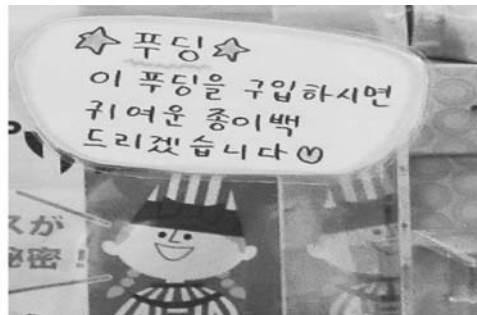 ☆ 푸딩 ☆
이 푸딩을 구입하시면
귀여운 종이백
드리겠습니다♡
スが
秘密!